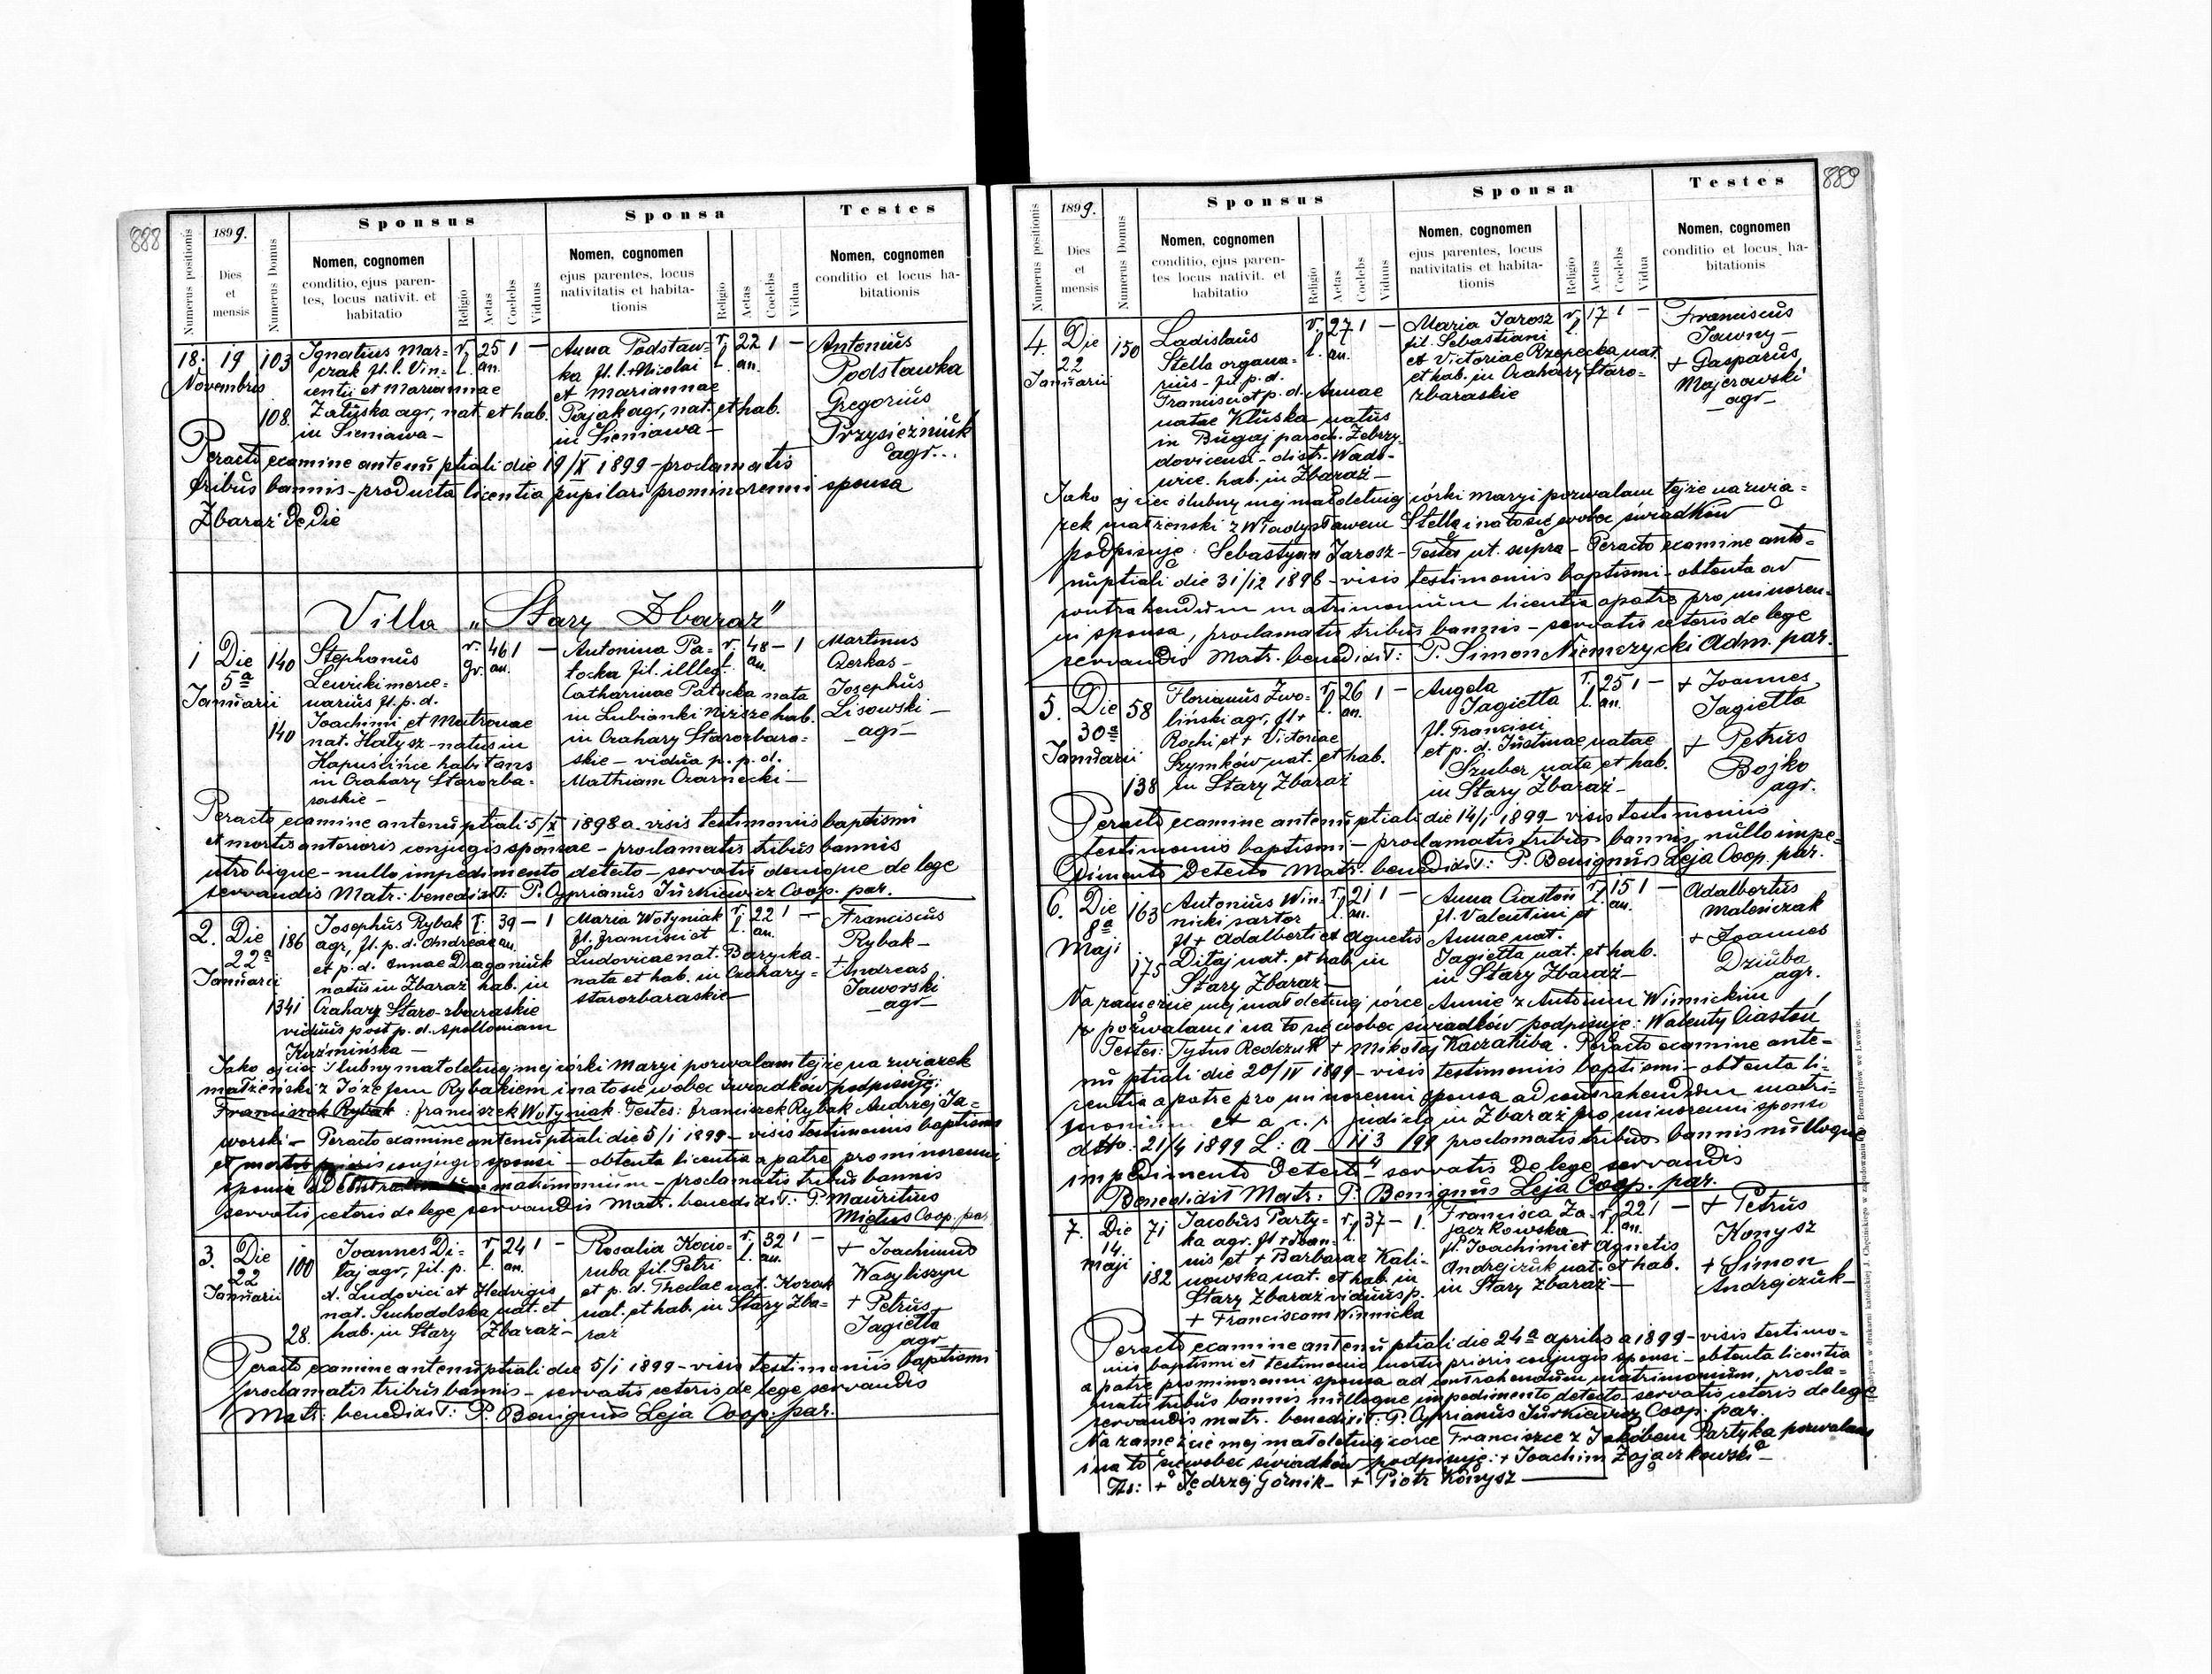 888
Numerus positionis
1899.
Dies
et
mensis
Numerus Domus
Sponsus
Nomen, cognomen
conditio, ejus paren-
tes, locus nativit. et
habitatio
Religio
Aetas
Coelebs
Viduus
Sponsa
Nomen, cognomen
ejus parentes, locus
nativitatis et habita-
tionis
Religio
Aetas
Coelebs
Vidua
Testes
Nomen, cognomen
conditio et locus ha-
bitationis
18. 19 103 Ignatius Mar= r. 25 1 — Anna Podstaw= r. 22 1 — Antonius
Novembris czak fil. l. Vin= l. an. ka fil. l. + Nicolai l. an. Podstawka
centii et Mariannae et Mariannae Gregorius
108. Załuska agr, nat. et hab. Pająk agr, nat. et hab. Przysiężniuk
in Sieniawa — in Sieniawa — agr...
Peracto examine antenuptiali die 19/X 1899 — proclamatis
tribus bannis — producta licentia pupilari pro minorenni sponsa
Zbaraż de die
Villa „Stary Zbaraż"
1 Die 140 Stephanus r. 46 1 — Antonina Pa= r. 48 — 1 Martinus
5ª Lewicki merce= gr. an. tocka fil. illeg. l. an. Czerkas —
Januarii narius fil. p. d. Catharinae Patocka nata Josephus
140 Joachimi et Matronae in Lubianki Niższe hab. Lisowski —
nat. Hałysz — natus in in Czahary Starozbara= — agr —
Hapuścińce habitans skie — vidua p. p. d.
in Czahary Starozba= Mathiam Czarnecki —
raskie —
Peracto examine antenuptiali 5/X 1898 a. visis testimoniis baptismi
et mortis anterioris conjugis sponsae — proclamatis tribus bannis
utrobique — nullo impedimento detecto — servatis denique de lege
servandis Matr: benedixit: P. Cyprianus Jurkiewicz Coop. par.
2. Die 186 Josephus Rybak r. 39 — 1 Maria Wołyniak r. 22 1 — Franciscus
22ª agr, fil. p. d. Andreae an. fil. Francisci et l. an. Rybak —
Januarii et p. d. Annae Draganiuk Ludovicae nat. Barycka + Andreas
natus in Zbaraż hab. in nata et hab. in Czahary= Jaworski
1341 Czahary Staro-zbaraskie starozbaraskie — — agr —
viduus post p. d. Apolloniam
Kuźmińska —
Jako ojciec ślubny małoletniej mej córki Maryi pozwalam tejże na związek
małżeński z Józefem Rybakiem i na to się wobec świadków podpisuję:
Franciszek Rybak: Franciszek Wołyniak. Testes: Franciszek Rybak Andrzej Ja=
worski — Peracto examine antenuptiali die 5/1 1899 — visis testimoniis baptismi
et mortis prioris conjugis sponsi — obtenta licentia a patre pro minorenni
sponsa ad matrimonium — proclamatis tribus bannis
servatis ceteris de lege servandis Matr. benedixit: P. Mauritius
Miętus Coop. par
3. Die 100 Joannes Di= r. 24 1 — Rosalia Kocio= r. 32 1 — + Joachimus
22 taj agr, fil. p. l. an. ruba fil. Petri l. an. Wasyliszyn
Januarii d. Ludovici et Hedvigis et p. d. Theclae nat. Kozak + Petrus
nat. Suchodolska nat. et nat. et hab. in Stary Zba= Jagiełła
28. hab. in Stary Zbaraż — raż agr
Peracto examine antenuptiali die 5/1 1899 — visis testimoniis baptismi
proclamatis tribus bannis — servatis ceteris de lege servandis
Matr: benedixit: P. Benignus Leja Coop. par.
889
Numerus positionis
1899.
Dies
et
mensis
Numerus Domus
Sponsus
Nomen, cognomen
conditio, ejus paren-
tes locus nativit. et
habitatio
Religio
Aetas
Coelebs
Viduus
Sponsa
Nomen, cognomen
ejus parentes, locus
nativitatis et habita-
tionis
Religio
Aetas
Coelebs
Vidua
Testes
Nomen, cognomen
conditio et locus, ha-
bitationis
4. Die 150 Ladislaus r. 27 1 — Maria Jarosz r. 17 1 — Franciscus
22 Stella organa= l. an. fil. Sebastiani l. Jawny —
Januarii rius — fil. p. d. et Victoriae Rzepecka nat. + Gasparus
Francisci et p. d. Annae et hab. in Czahary Staro= Majerowski
natae Kluska natus zbaraskie — agr —
in Bugaj paroch. Zebrzy=
dovicensi — distr. Wado=
wice. hab. in Zbaraż —
Jako ojciec ślubny mej małoletniej córki Maryi pozwalam tejże na zwią=
zek małżeński z Władysławem Stellą i na to się wobec świadków
podpisuję: Sebastyan Jarosz — Testes ut. supra — Peracto examine ante=
nuptiali die 31/12 1898 — visis testimoniis baptismi — obtenta ad
contrahendum matrimonium licentia a patre pro minoren=
ni sponsa, proclamatis tribus bannis — servatis ceteris de lege
servandis Matr. benedixit: P. Simon Niemczycki Adm. par.
5. Die 58 Florianus Zwo= r. 26 1 — Angela r. 25 1 — + Joannes
30ª liński agr, fil + l. an. Jagiełła l. an. Jagiełła
Januarii Rochi et + Victoriae fil. Francisci + Petrus
Szymków nat. et hab. et p. d. Justinae natae Bojko
138 in Stary Zbaraż Szuber nata et hab. agr.
in Stary Zbaraż —
Peracto examine antenuptiali die 14/1 1899 — visis testimoniis
testimoniis baptismi — proclamatis tribus bannis, nullo impe=
dimento detecto Matr. benedixit: P. Benignus Leja Coop. par.
6. Die 163 Antonius Win= r. 21 1 — Anna Ciastoń r. 15 1 — Adalbertus
8ª nicki sartor l. an. fil. Valentini et l. an. Maleńczak
Maji fil + Adalberti et Agnetis Annae nat. + Joannes
175 Ditaj nat. et hab. in Jagiełła nat. et hab. Dziuba
Stary Zbaraż — in Stary Zbaraż — agr.
Na zamęźcie mej małoletniej córce Annie z Antonim Winnickim
pozwalam i na to się wobec świadków podpisuję: Walenty Ciastoń
Testes: Tytus Redczuk + Mikołaj Kaczałuba. Peracto examine ante=
nuptiali die 20/IV 1899 — visis testimoniis baptismi — obtenta li=
centia a patre pro minorenni sponsa ad contrahendum matri=
monium et a c. r. judicio in Zbaraż pro minorenni sponso
dtto. 21/4 1899 L: A 113/98 proclamatis tribus bannis nulloque
impedimento detecto servatis de lege servandis
Benedixit Matr: P. Benignus Leja Coop. par.
7. Die 71 Jacobus Party= r. 37 — 1. Francisca Za= r. 22 1 — + Petrus
14. ka agr. fil + l. jączkowska l. an. Konysz
Maji nis et + Barbarae Kali= fil. Joachimi et Agnetis + Simon
182 nowska nat. et hab. in Andrejczuk nat. et hab. Andrejczuk —
Stary Zbaraż viduus p. in Stary Zbaraż —
+ Franciscam Winnicka
Peracto examine antenuptiali die 24ª aprilis a 1899 — visis testimo=
niis baptismi et testimonio mortis prioris conjugis sponsi — obtenta licentia
a patre pro minorenni sponsa ad contrahendum matrimonium, procla=
matis tribus bannis nulloque impedimento detecto servatis ceteris de lege
servandis matr. benedixit: P. Cyprianus Jurkiewicz Coop. par.
Na zamęźcie mej małoletniej córce Franciszce z Jakóbem Partyka pozwalam
i na to się wobec świadków podpisuję: + Joachim Zajączkowski —
Ts: + Jędrzej Górnik — + Piotr Konysz
w drukarni katolickiej J. Chęcińskiego w zabudowaniu Bernardynów we Lwowie.